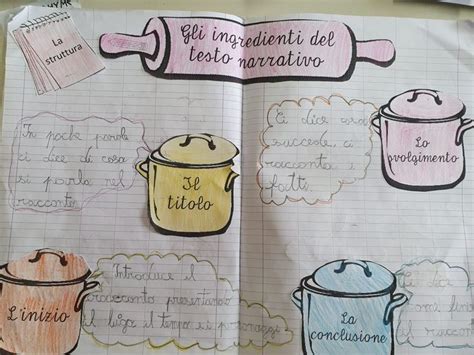 La
struttura
Gli ingredienti del
testo narrativo
In poche parole
ci dice di cosa
si parla nel
racconto.
Il
titolo
Ci dice cosa
succede, ci
racconta i
fatti.
Lo
svolgimento
L'inizio
Introduce il
racconto presentando
il luogo il tempo e i personaggi
La
conclusione
Ci dice
come